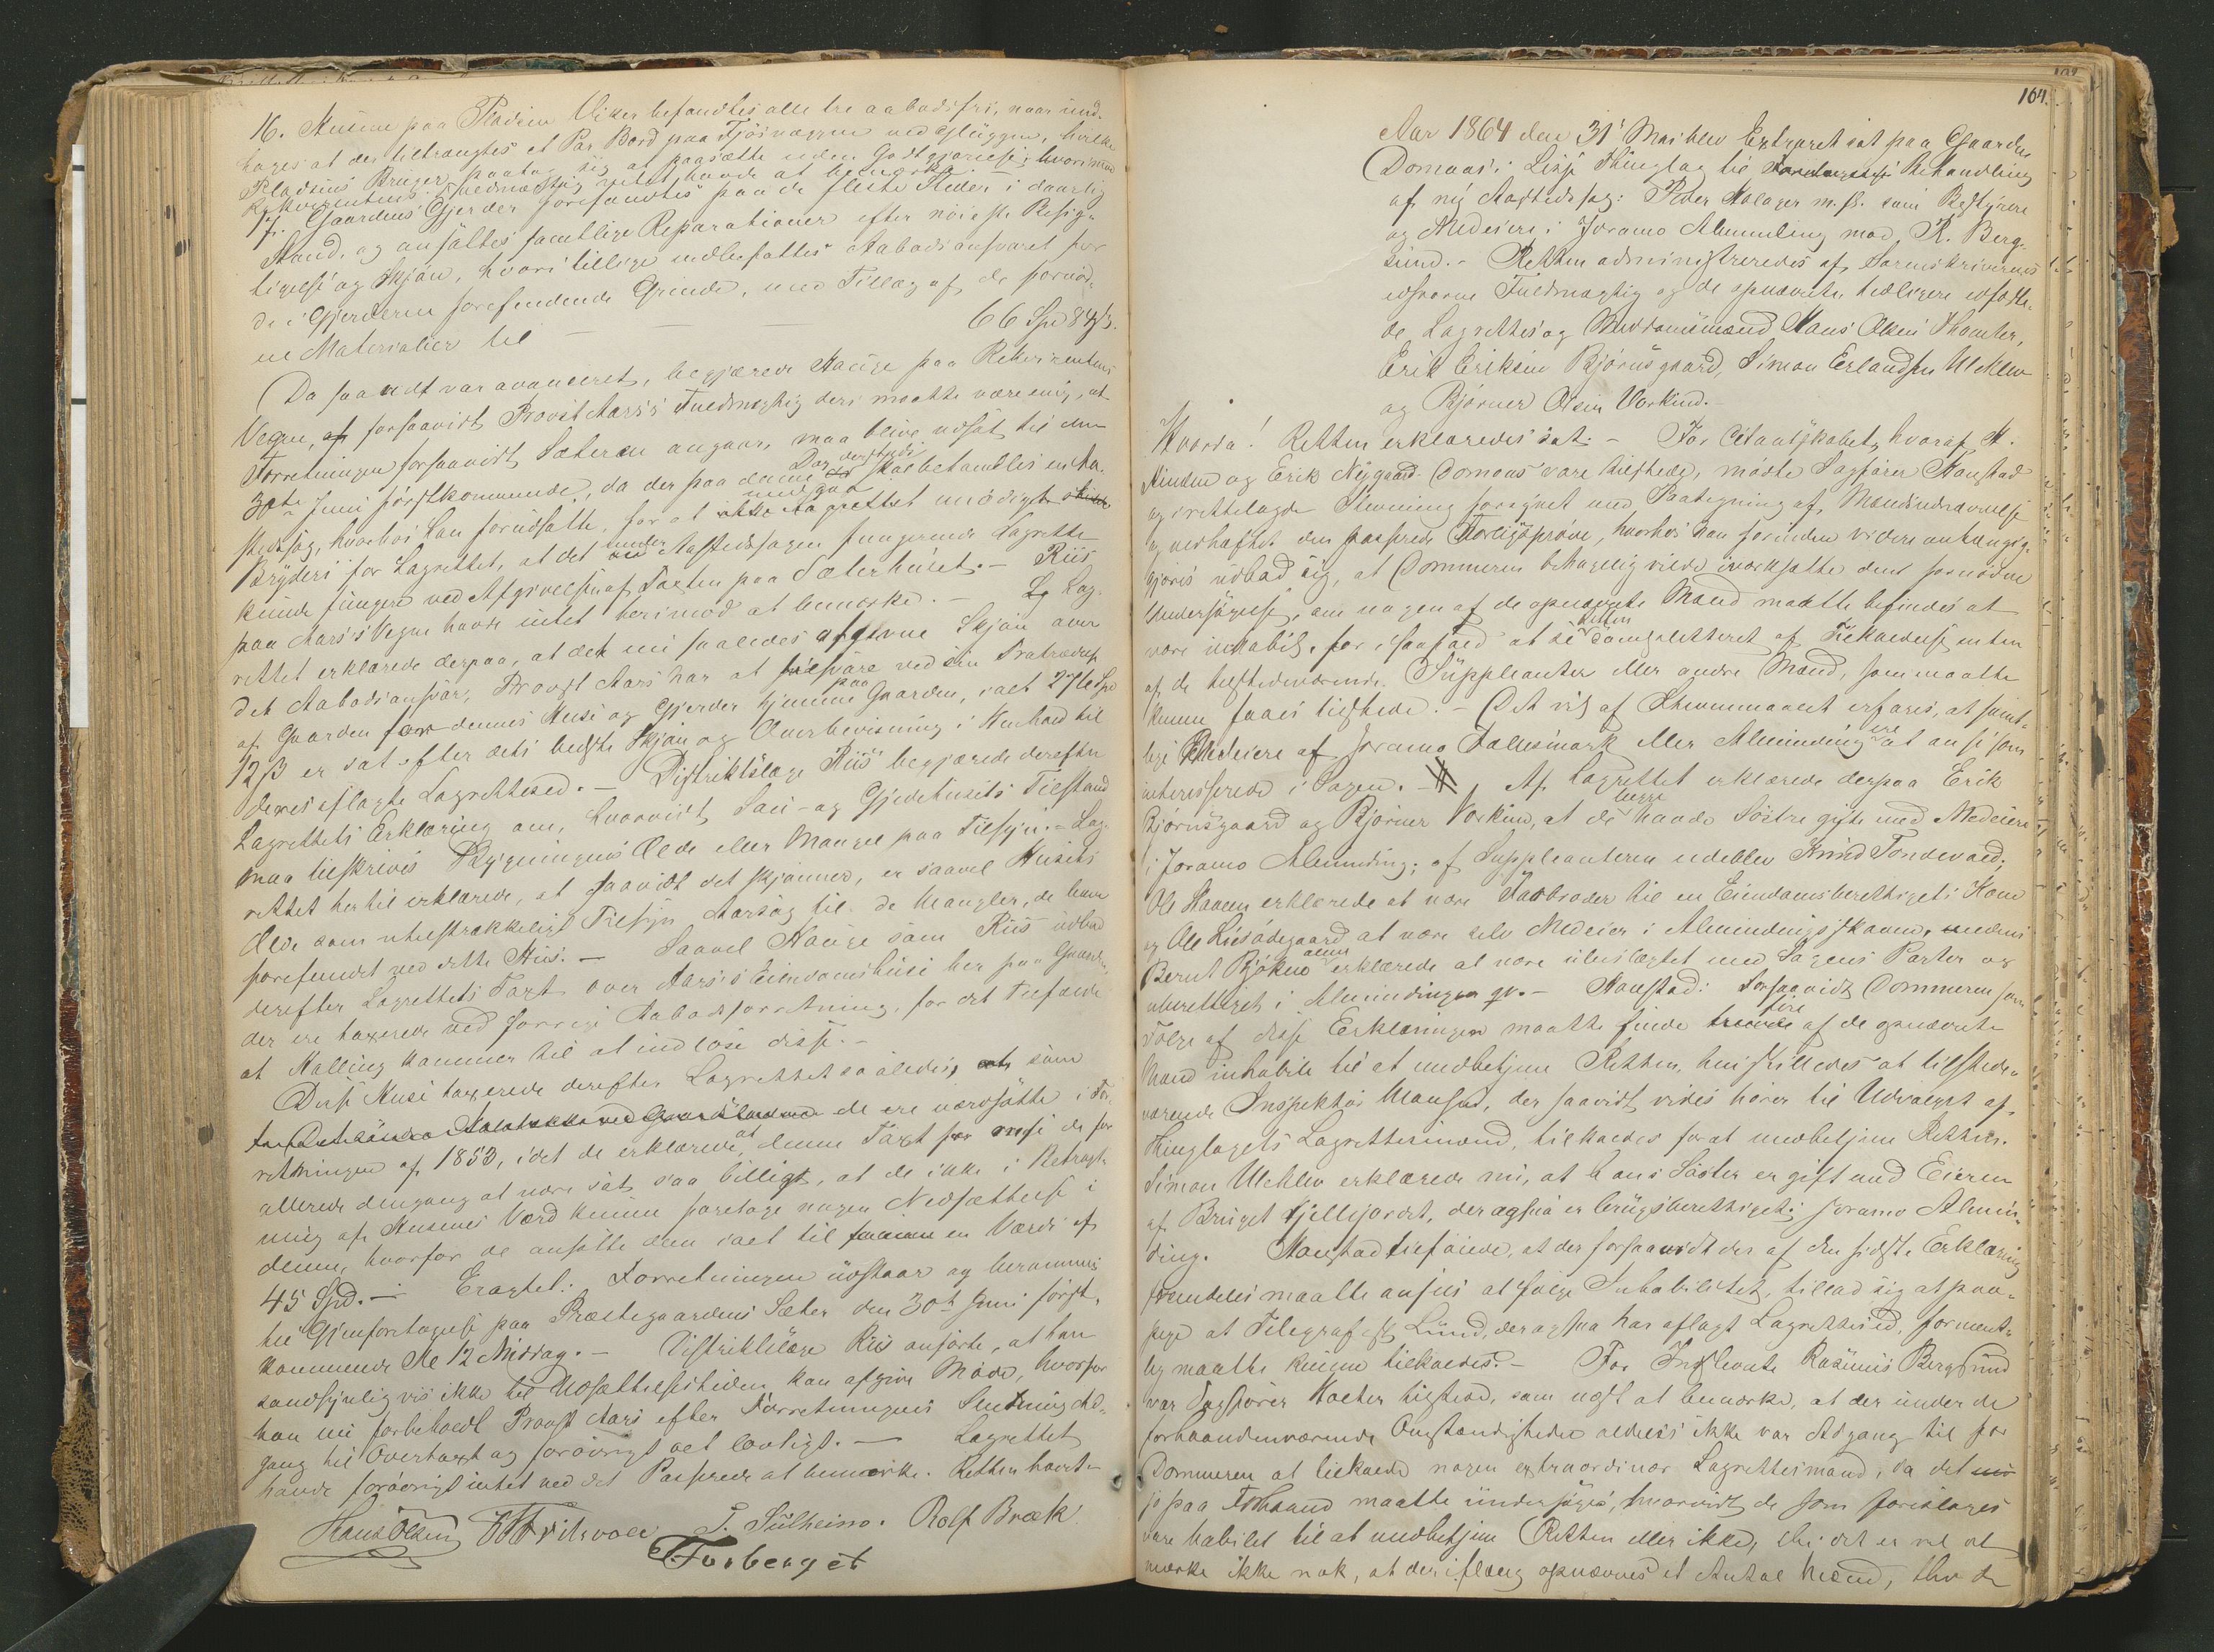 16. Husene paa Pladsen Viker befandtes alle tre aabodsfri, naar und-
tages at der tiltrængtes et Par Bord paa Fjösvæggen ved Gluggen, hvilke
Pladsens Bruger paatog sig at paasætte uden Godtgjørelse; hvorimod
Rekvirentens Fuldmægtig intet havde at bemærke.
17. Gaardens Gjerder forefandtes paa de fleste Steder i daarlig
Stand, og ansattes samtlige Reparationer efter nöieste Besig-
tigelse og Skjön, hvori tillige indbefattes Aabodsansvaret for
de i Gjerderne forefindende Grinde, med Tillæg af de fornød-
ne Materialier til — — 66 Spd 84 ß.
Da saavidt var avanceret, begjærede Hauge paa Rekvirentens
Vegne, at forsaavidt Provst Aars's Fuldmægtig deri maatte være enig, at
Forretningen forsaavidt Sæteren angaar, maa blive udsat til den
30te Juni förstkommende, da der paa denne Dag dersteds skal behandles en Aa-
stedssag, hvorhos han forudsatte, for at undgaa Lagrettet unödigt
Bryderi for Lagrettet, at det under Aastedssagen fungerende Lagrette
kunde fungere ved Afgivelsen af Taxten paa Sæterhuset. — Riis
paa Aars's Vegne havde intet herimod at bemærke. — Lag-
rettet erklærede derpaa, at det nu saaledes afgivne Skjön over
det Aabodsansvar, Provst Aars har at tilsvare ved sin Fratrædelse
af Gaarden for dennes Huse og Gjerder hjemme paa Gaarden, ialt 276 Spd
12 ß er sat efter dets bedste Skjön og Overbevisning i Henhold til
deres aflagte Lagrettesed. — Distriktslæge Riis begjærede derefter
Lagrettets Erklæring om, hvorvidt Saue- og Gjedehusets Tilstand
maa tilskrives Bygningens Ælde eller Mangel paa Tilsyn. — Lag-
rettet hertil erklærede, at saavidt det skjønner, er saavel Husets
Ælde som utilstrækkeligt Tilsyn Aarsag til de Mangler, de have
forefundet ved dette Hus. — Saavel Hauge som Riis udbad
derefter Lagrettets Taxt over Aars's Eiendomshuse her paa Gaarden,
der ere taxerede ved forrige Aabodsforretning, for det Tilfælde
at Kalling kommer til at indløse disse. —
Disse Huse taxerede derefter Lagrettet saaledes, som
de ere værdsatte i For-
retningen af 1853, idet de erklærede, at denne Taxt
allerede dengang at være sat saa billigt, at de ikke i Betragt-
ning af Husenes Værd kunne foretage nogen Nedsættelse i
denne, hvorfor de ansatte dem ialt til en Værdi af
45 Spd. — Eragtet: Forretningen udstaar og berammes
til Gjenforetagelse paa Præstegaardens Sæter den 30te Juni först-
kommende Kl 12 Middag. — Distriktslæge Riis anførte, at han
sandsynligvis ikke til Udsættelsestiden kan afgive Møde, hvorfor
han nu forbeholdt Provst Aars efter Forretningens Slutning Ad-
gang til Overtaxt og forövrigt alt lovligt. — Lagrettet
havde forövrigt intet ved det Passerede at bemærke. Retten hævet.
Hans Olsen J. Sulheim. Rolf Bræk.
TForberget
164.
Aar 1864 den 31' Mai blev Extraret sat paa Gaarden
Domaas i Lesje Thinglag til Behandling
af ny Aastedssag: Peder Kolager m. fl. som Bestyrere
og Medeiere i Joramo Alminding mod R. Berg-
sund. — Retten administreredes af Sorenskriverens
edsvorne Fuldmægtig og de opnævnte tidligere edfæste-
de Lagrettes og Meddomsmænd Hans Olsen Thomter,
Erik Eriksen Bjørnsgaard, Simon Erlandsen Uleklev
og Bjørner Olsen Vorkind. —
Hvorda! Retten erklæredes sat. — For Citantskabet, hvoraf H.
Kinden og Erik Nygaard Domaas vare tilstede, mødte Sagfører Hanstad
og irettelagde Stevning forsynet med Paategning af Mandsudnævnelse
og vedhæftet den passerede Forligsprøve, hvorhos han forinden videre antages
gjøres udbad sig, at Dommeren behagelig vilde iværksætte den fornødne
Undersögelse, om nogen af de opnævnte Mænd maatte befindes at
være inhabil, for i saafald at se Retten completteret af Tilkaldelse enten
af de tilstedeværende Suppleanter eller andre Mænd, som maatte
kunne faaes tilstede. — Det vil af Stevnemaalet erfares, at samt-
lige Medeiere af Joramo Fællesmark eller Alminding ere at anse som
interesserede i Sagen. — Af Lagrettet erklærede derpaa Erik
Bjørnsgaard og Bjørner Vorkind, at de begge havde Söstre gifte med Medeiere
i Joramo Alminding; af Suppleanterne udeblev Knud Tondevold;
Ole Haagen erklærede at være Farbroder til en Eiendomsberettigets Kone
og Ole Lieödegaard at være selv Medeier i Almindingsskoven, medens
Bernt Bjøkne alene erklærede at være ubeslægtet med Sagens Parter og
uberettiget i Almindingen qv. — Hanstad: Forsaavidt Dommeren som
Fölge af disse Erklæringer maatte finde fire af de opnævnte
Mænd inhabile til at medbetjene Retten, henstilledes at tilstede-
værende Inspektör Mansus, der saavidt vides hörer til Udvalget af
Thinglagets Lagrettesmænd, tilkaldes for at medbetjene Retten.
Simon Uleklev erklærede nu, at hans Söster er gift med Eieren
af Bruget Kjellejordet, der ogsaa er brugsberettiget i Joramo Almin-
ding. Hanstad tilføiede, at der forsaavidt der af den sidste Erklæring
fremdeles maatte ansees at følge Inhabilitet, tillod sig at paa-
pege at Telegrafist Lund, der ogsaa har aflagt Lagrettesed, forment-
lig maatte kunne tilkaldes. — For Indstevnte Rasmus Bergsund
var Sagförer Holter tilstede, som nøst at bemærke, at der under de
forhaandenværende Omstændigheder aldeles ikke var Adgang til for
Dommeren at tilkalde nogen extraordinær Lagrettesmand, da det
jo paa Forhaand maatte undersöges, hvorvidt de som foreslages
vare habile til at medbetjene Retten eller ikke, thi det er vel at
mærke ikke nok, at der iflæng opnævnes et Antal Mænd, thi de